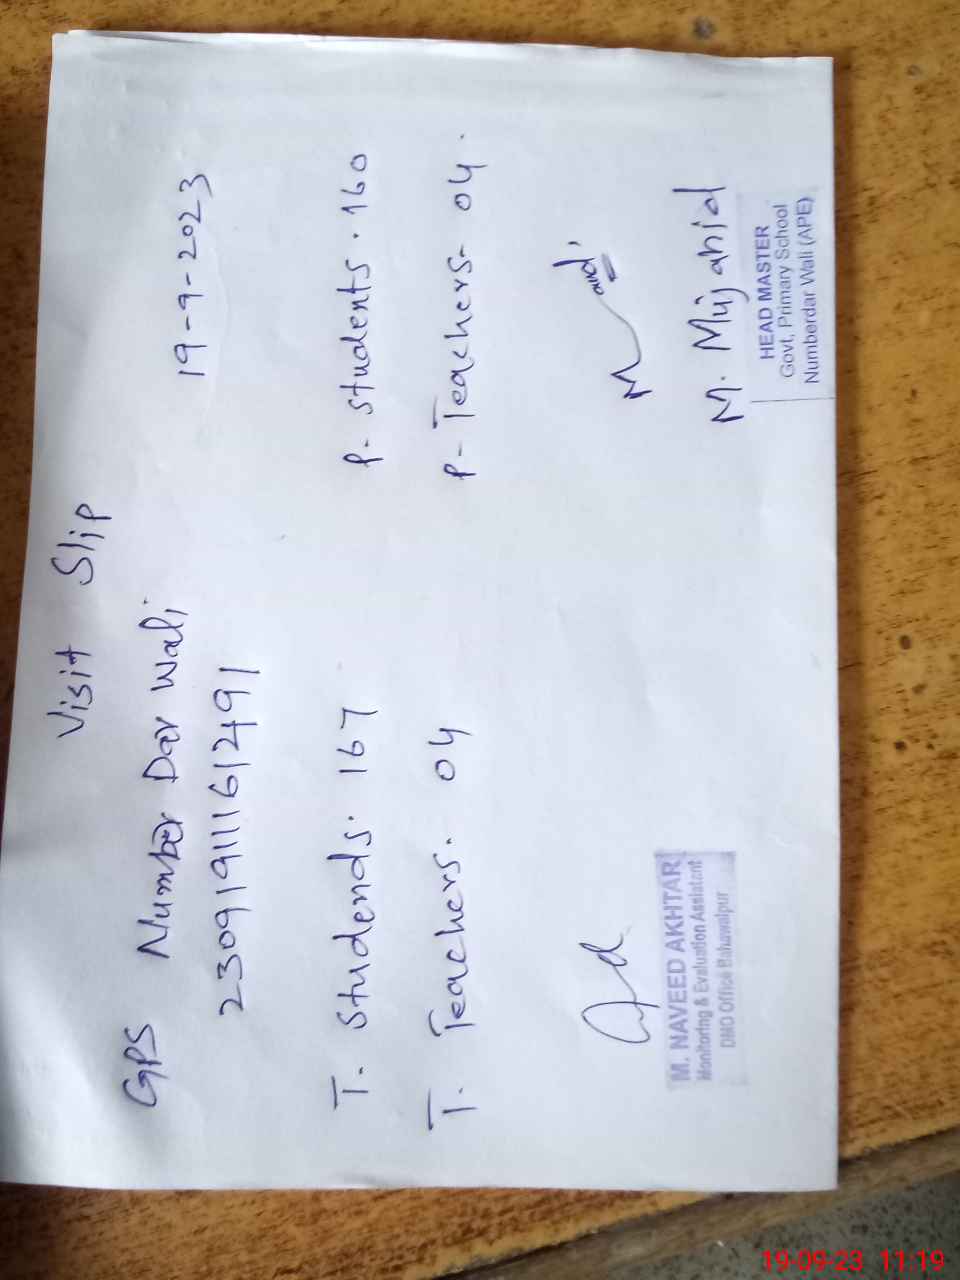 Visit Slip
GPS Number Dar Wali 19-9-2023
230919111612491
T. Studends. 167 P- students. 160
T. Teachers. 04 P- Teachers- 04.
M. Mujahid
M. NAVEED AKHTAR
Monitoring & Evaluation Assistant
DMO Office Bahawalpur
HEAD MASTER
Govt, Primary School
Numberdar Wali (APE)
19-09-23 11:19